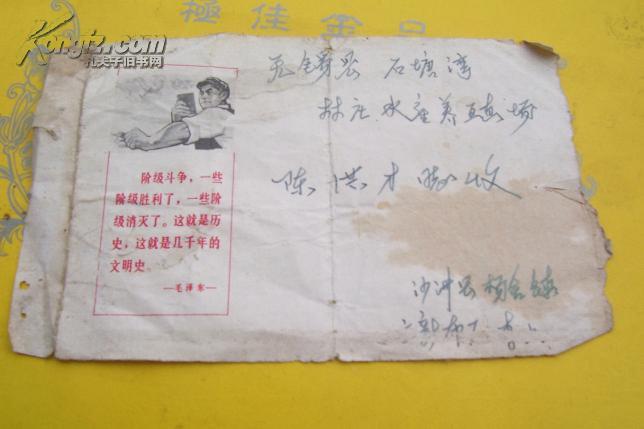 極佳金品
Kongfz.com
孔夫子旧书网
无锡县 石塘湾
林庄 水产养殖场
陈洪才 收
阶级斗争，一些
阶级胜利了，一些阶
级消灭了。这就是历
史，这就是几千年的
文明史。
—毛泽东—
沙洲县杨舍镇